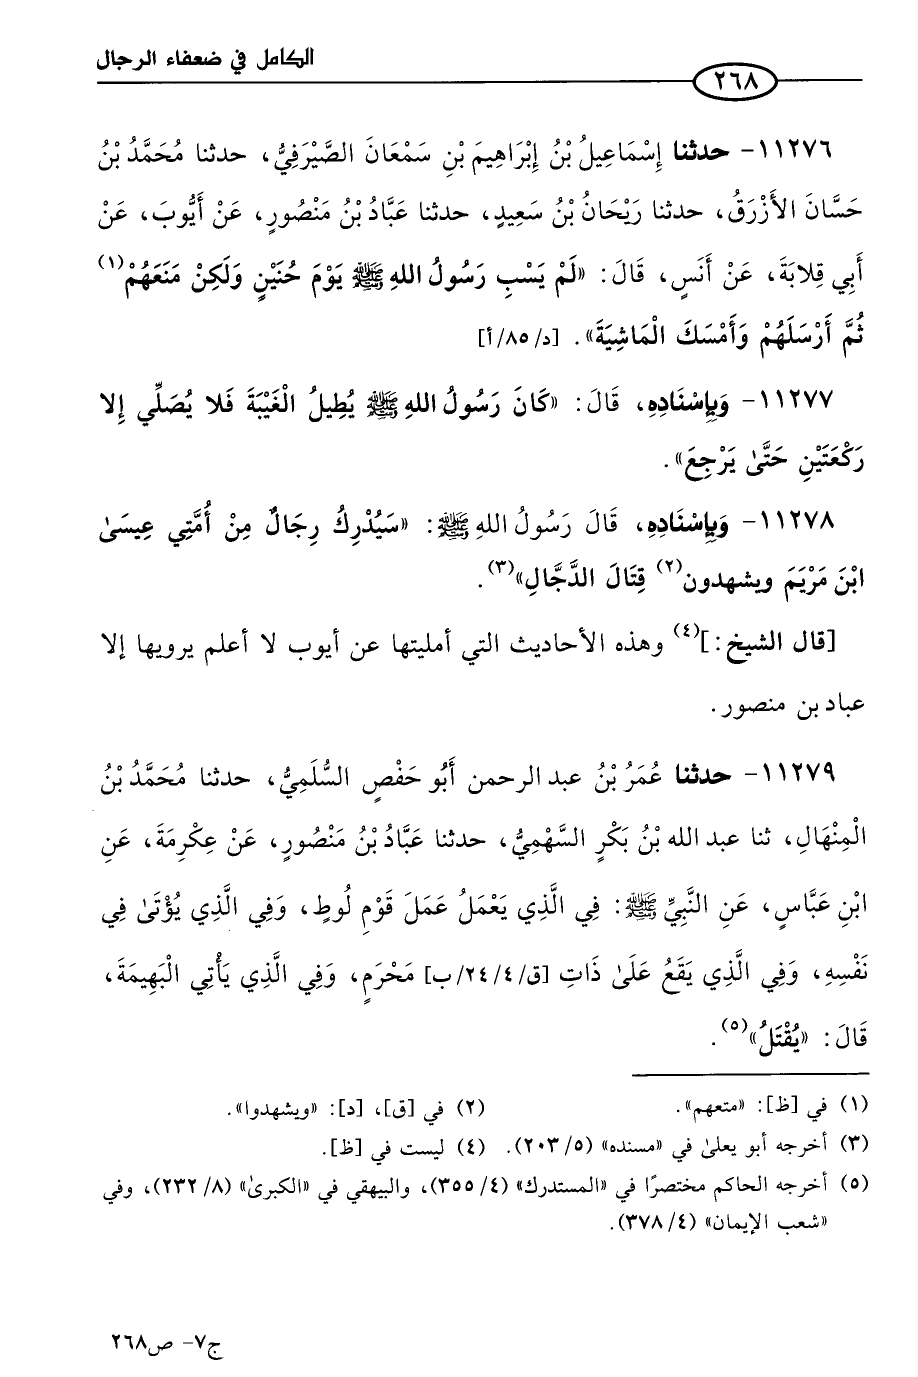 الكامل في ضعفاء الرجال
٢٦٨
١١٢٧٦- حدثنا إِسْمَاعِيلُ بْنُ إِبْرَاهِيمَ بْنِ سَمْعَانَ الصَّيْرَفِيُّ، حدثنا مُحَمَّدُ بْنُ
حَسَّانَ الأَزْرَقُ، حدثنا رَيْحَانُ بْنُ سَعِيدٍ، حدثنا عَبَّادُ بْنُ مَنْصُورٍ، عَنْ أَيُّوبَ، عَنْ
أَبِي قِلابَةَ، عَنْ أَنَسٍ، قَالَ: «لَمْ يَسْبِ رَسُولُ اللهِ ﷺ يَوْمَ حُنَيْنٍ وَلَكِنْ مَنَعَهُمْ(١)
ثُمَّ أَرْسَلَهُمْ وَأَمْسَكَ الْمَاشِيَةَ». [د/٨٥/أ]
١١٢٧٧- وَبِإِسْنَادِهِ، قَالَ: «كَانَ رَسُولُ اللهِ ﷺ يُطِيلُ الْغَيْبَةَ فَلا يُصَلِّي إِلا
رَكْعَتَيْنِ حَتَّىٰ يَرْجِعَ».
١١٢٧٨- وَبِإِسْنَادِهِ، قَالَ رَسُولُ اللهِ ﷺ: «سَيُدْرِكُ رِجَالٌ مِنْ أُمَّتِي عِيسَىٰ
ابْنَ مَرْيَمَ ويشهدون(٢) قِتَالَ الدَّجَّالِ»(٣).
[قال الشيخ:](٤) وهذه الأحاديث التي أمليتها عن أيوب لا أعلم يرويها إلا
عباد بن منصور.
١١٢٧٩- حدثنا عُمَرُ بْنُ عبد الرحمن أَبُو حَفْصٍ السُّلَمِيُّ، حدثنا مُحَمَّدُ بْنُ
الْمِنْهَالِ، ثنا عبد الله بْنُ بَكْرٍ السَّهْمِيُّ، حدثنا عَبَّادُ بْنُ مَنْصُورٍ، عَنْ عِكْرِمَةَ، عَنِ
ابْنِ عَبَّاسٍ، عَنِ النَّبِيِّ ﷺ: فِي الَّذِي يَعْمَلُ عَمَلَ قَوْمِ لُوطٍ، وَفِي الَّذِي يُؤْتَىٰ فِي
نَفْسِهِ، وَفِي الَّذِي يَقَعُ عَلَىٰ ذَاتِ [ق/٤/٢٤/ب] مَحْرَمٍ، وَفِي الَّذِي يَأْتِي الْبَهِيمَةَ،
قَالَ: «يُقْتَلُ»(٥).
(١) في [ظ]: «متعهم». (٢) في [ق]، [د]: «ويشهدوا».
(٣) أخرجه أبو يعلىٰ في «مسنده» (٥/٢٠٣). (٤) ليست في [ظ].
(٥) أخرجه الحاكم مختصرًا في «المستدرك» (٤/٣٥٥)، والبيهقي في «الكبرىٰ» (٨/٢٣٢)، وفي
«شعب الإيمان» (٤/٣٧٨).
ج٧- ص٢٦٨